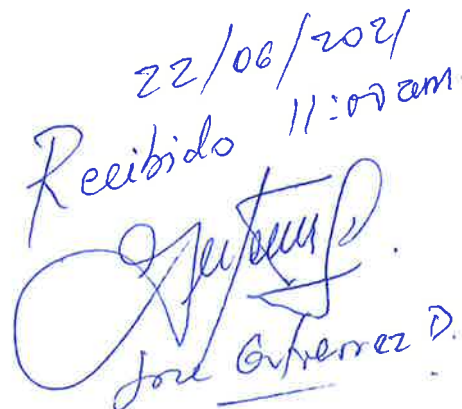 22/06/2021
Recibido 11:00am.
José Gutierrez D.